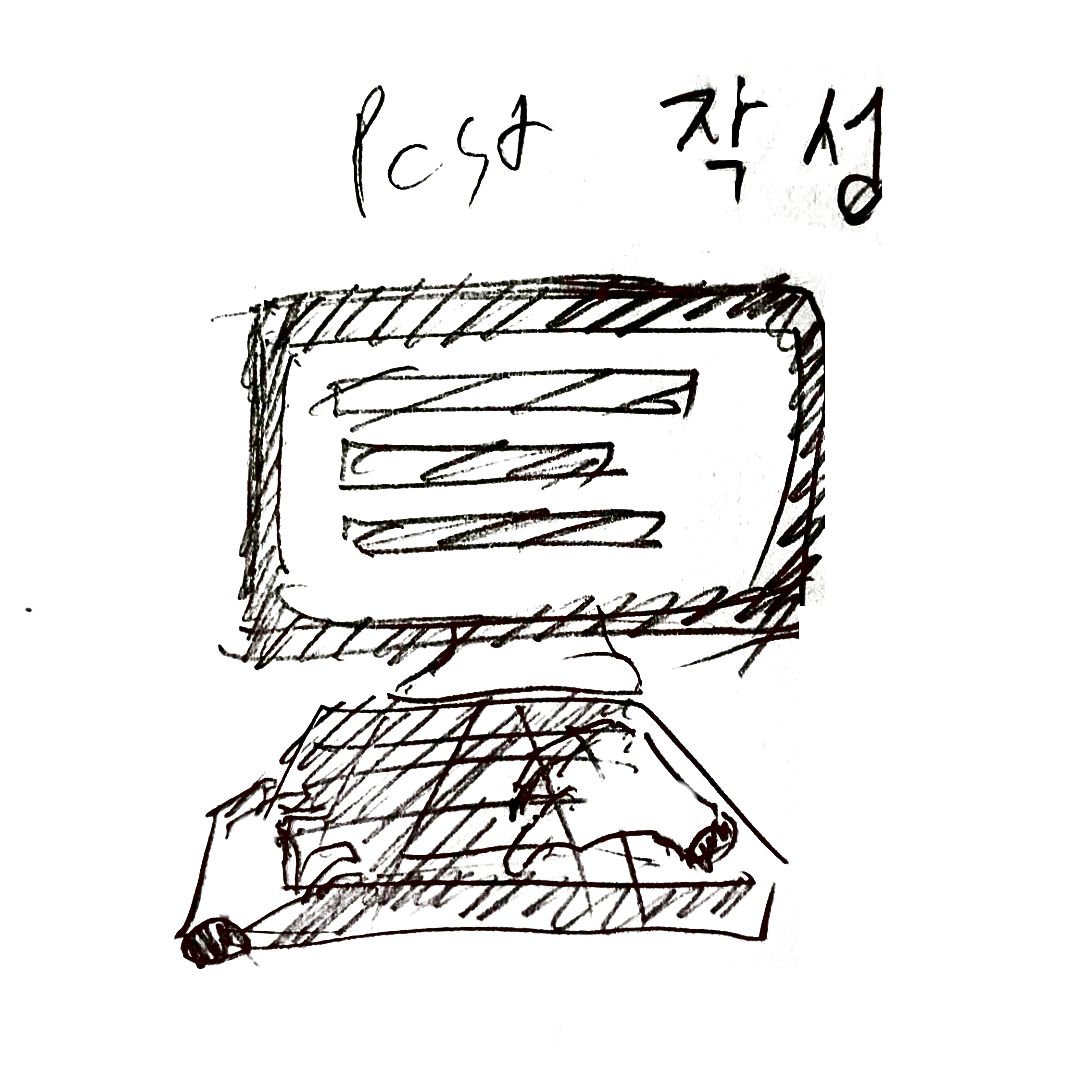 Post 작성